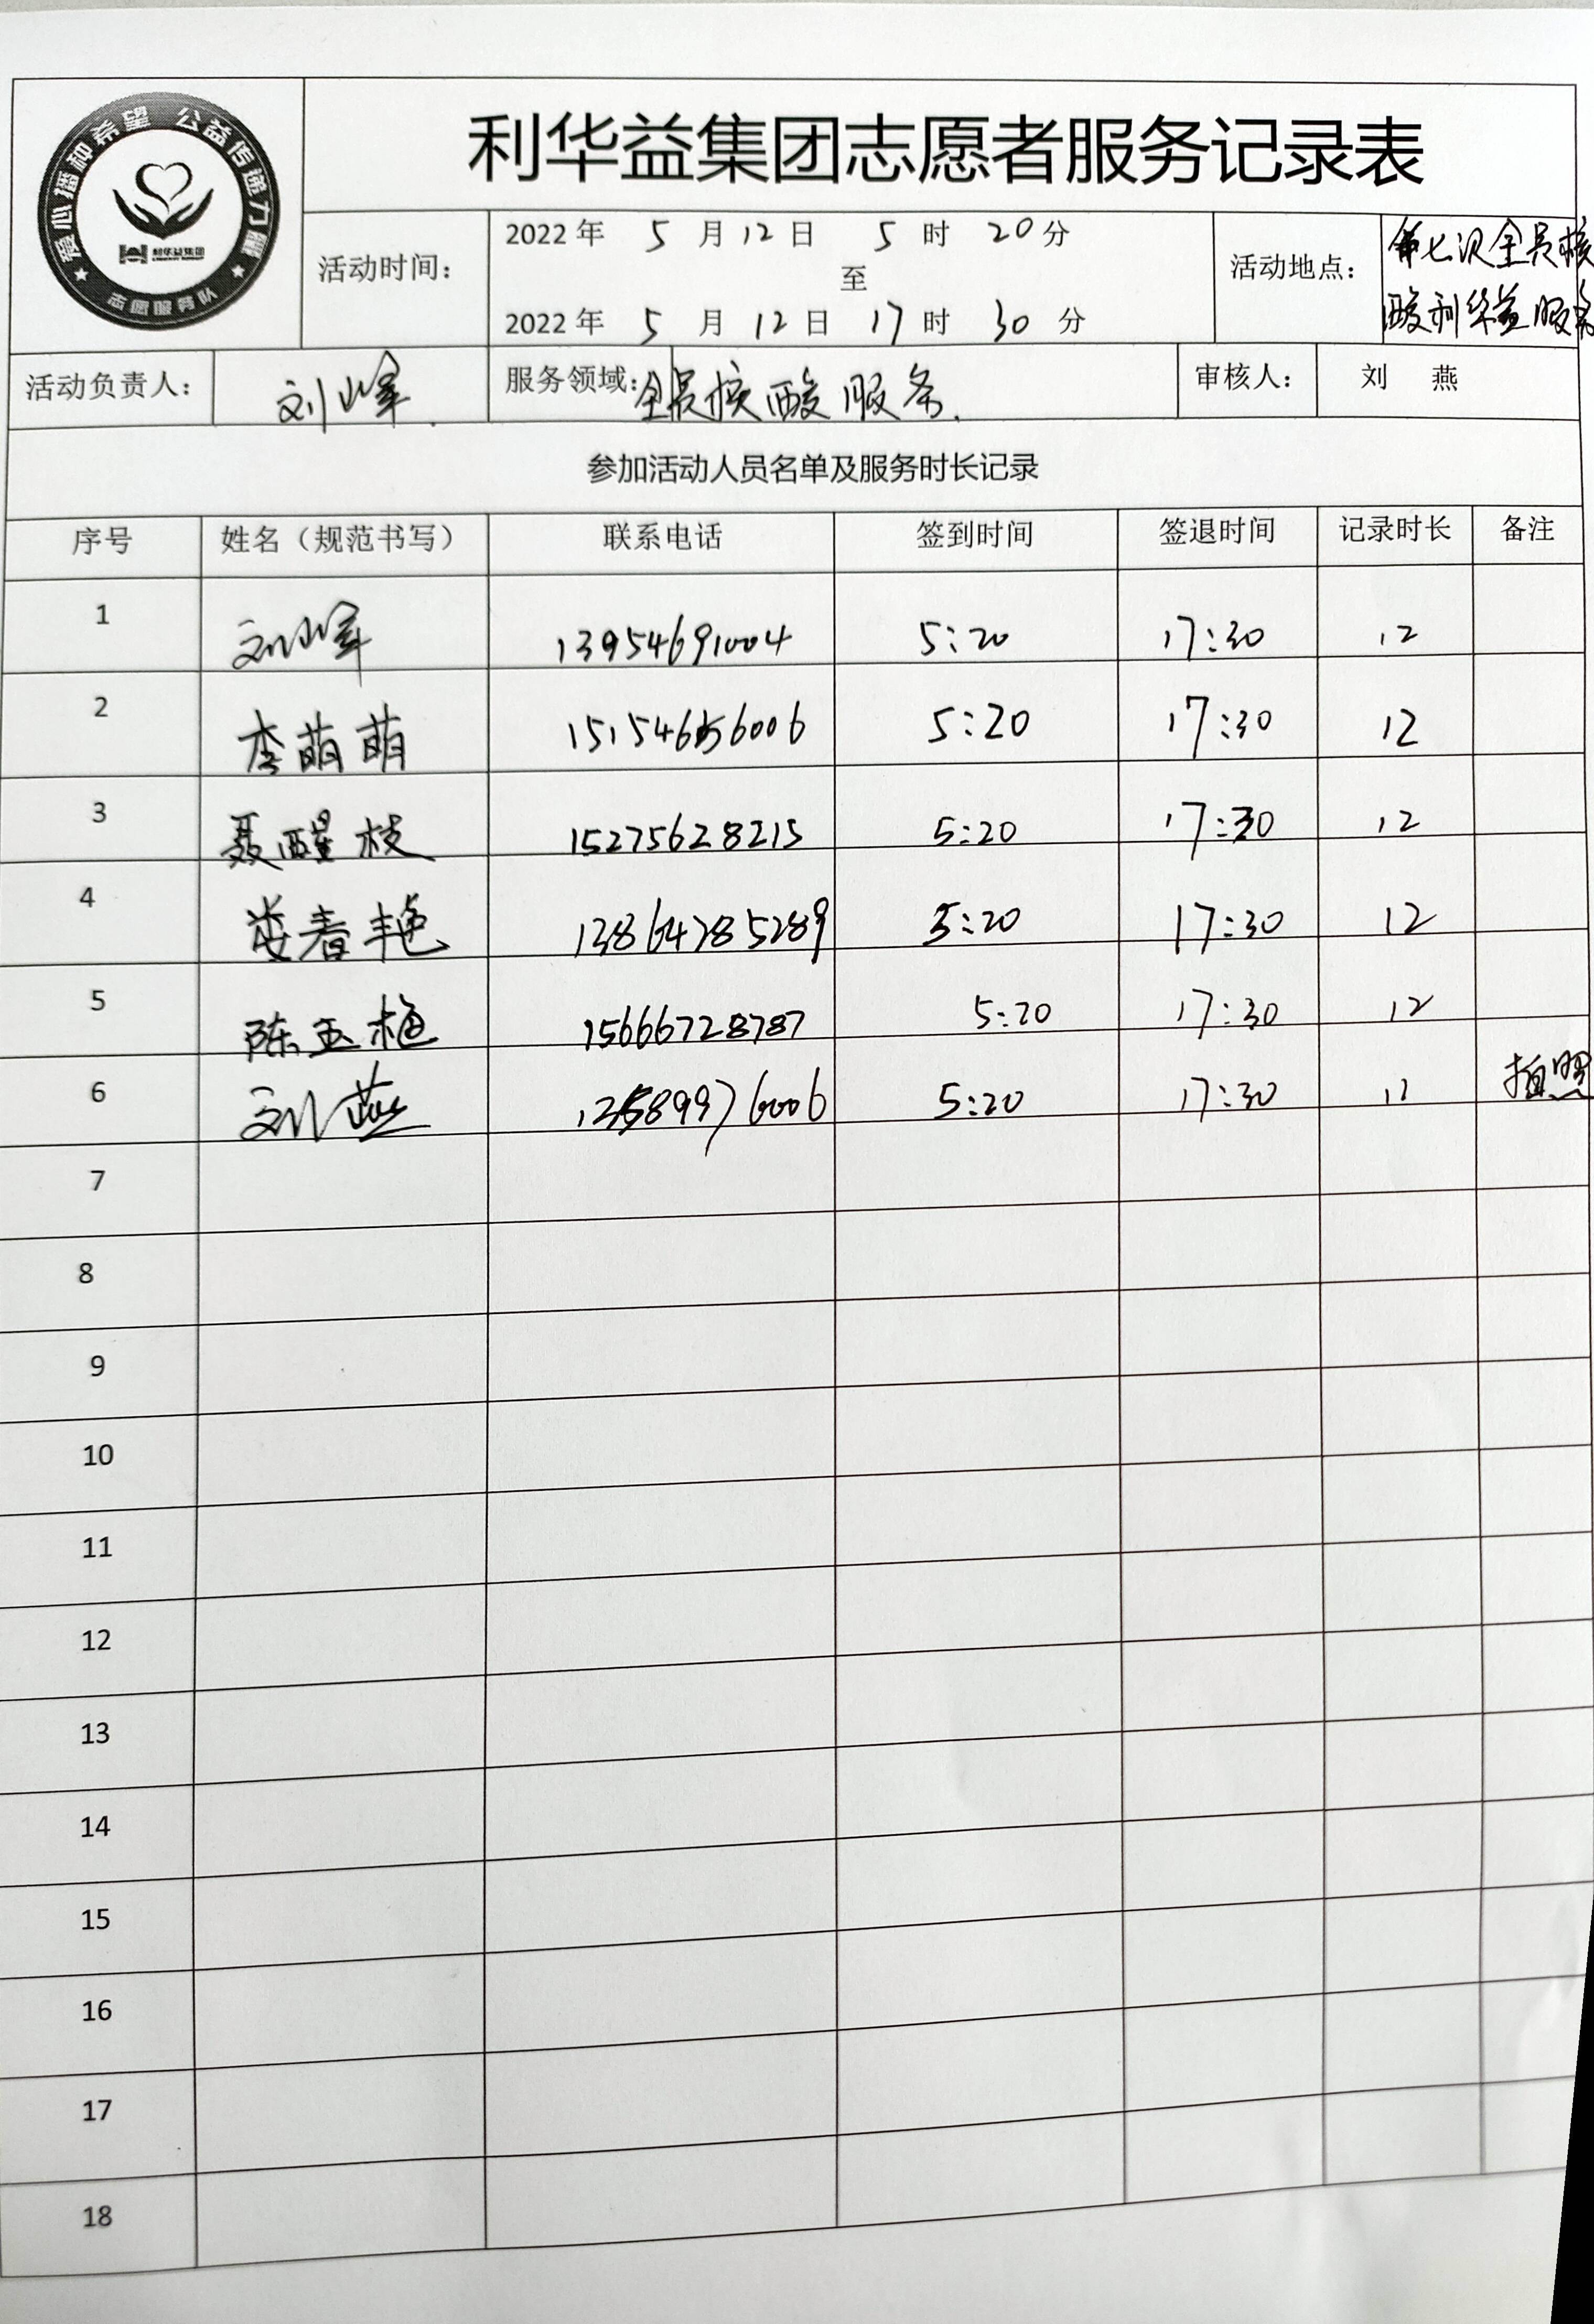 爱心播种希望 公益传递力量
利华益集团
志愿服务队
利华益集团志愿者服务记录表
活动时间: 2022年 5 月 12 日 5 时 20 分
至
2022年 5 月 12 日 17 时 30 分
活动地点: 第七次全员核
酸利华益服务
活动负责人: 刘峰 服务领域: 全员核酸服务. 审核人: 刘 燕
参加活动人员名单及服务时长记录
序号 姓名（规范书写） 联系电话 签到时间 签退时间 记录时长 备注
1 刘峰 13954691004 5:20 17:30 12
2 李萌萌 5:20 17:30 12
3 聂醒枝 15275628215 5:20 17:30 12
4 娄春艳 13864785289 5:20 17:30 12
5 陈玉梅 15666728787 5:20 17:30 12
6 刘燕 5:20 17:30 拍照
7
8
9
10
11
12
13
14
15
16
17
18